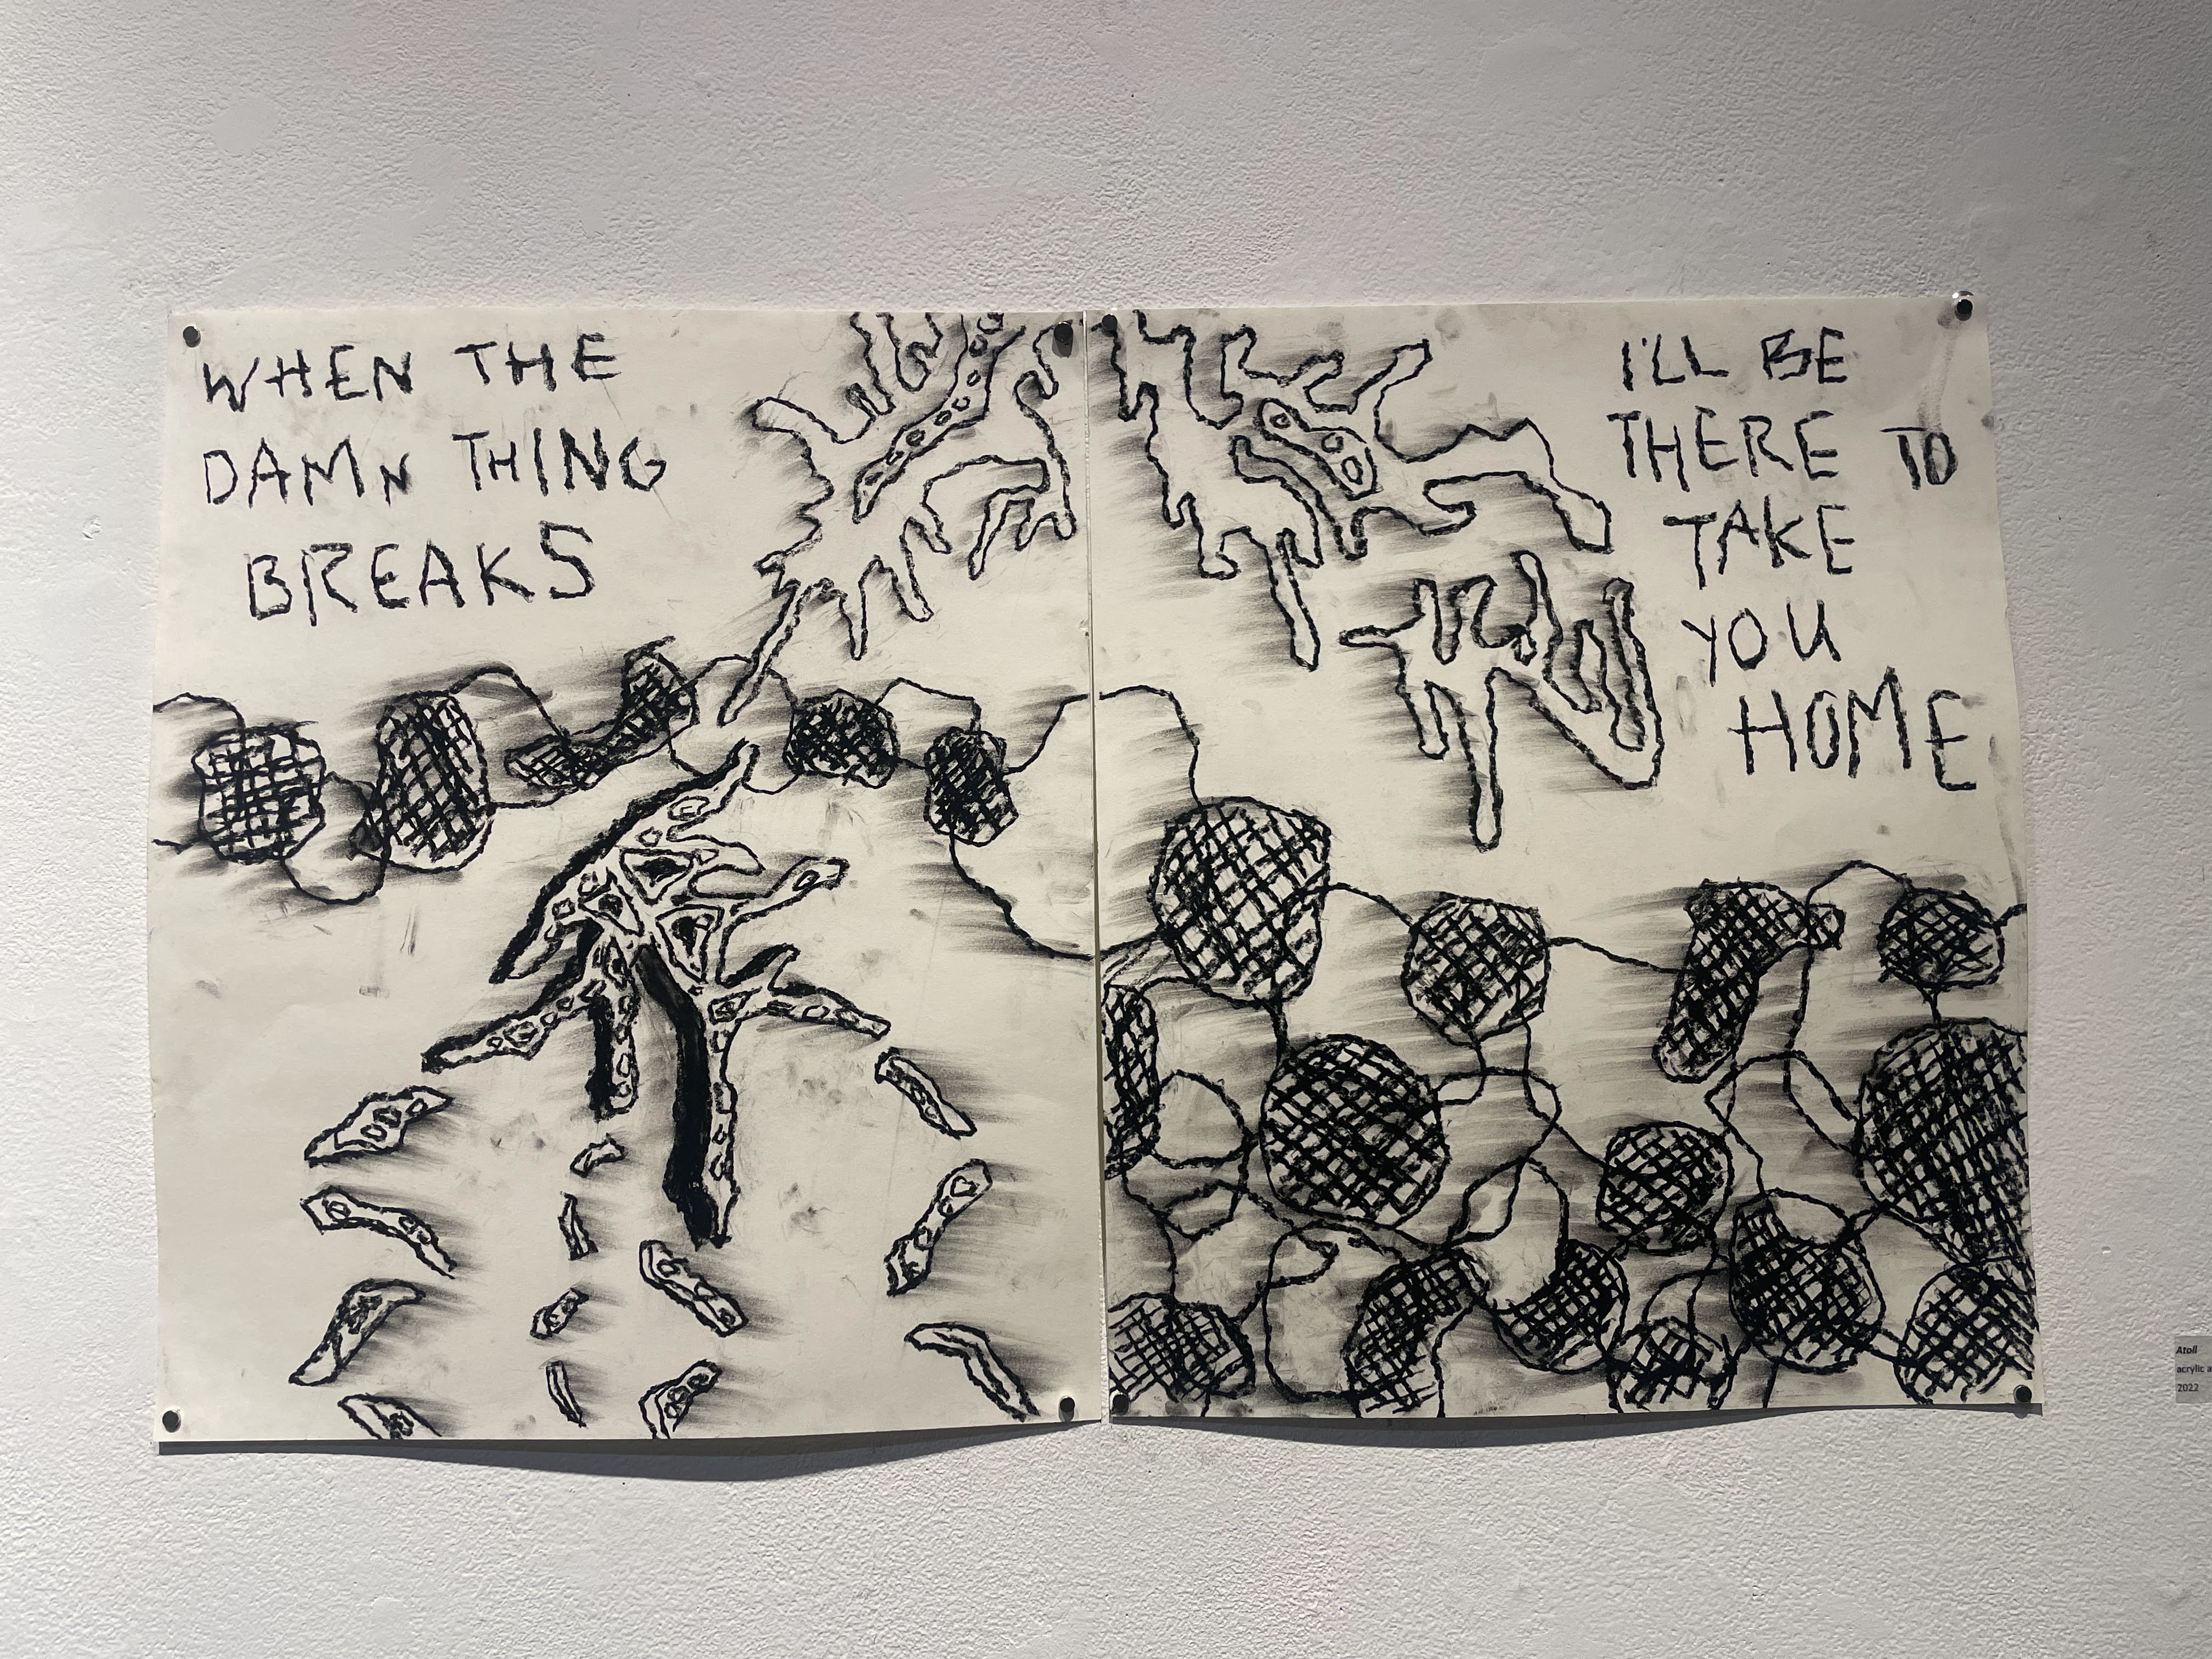 WHEN THE
DAMN THING
BREAKS
I'LL BE
THERE TO
TAKE
YOU
HOME
Atoll
acrylic
2022